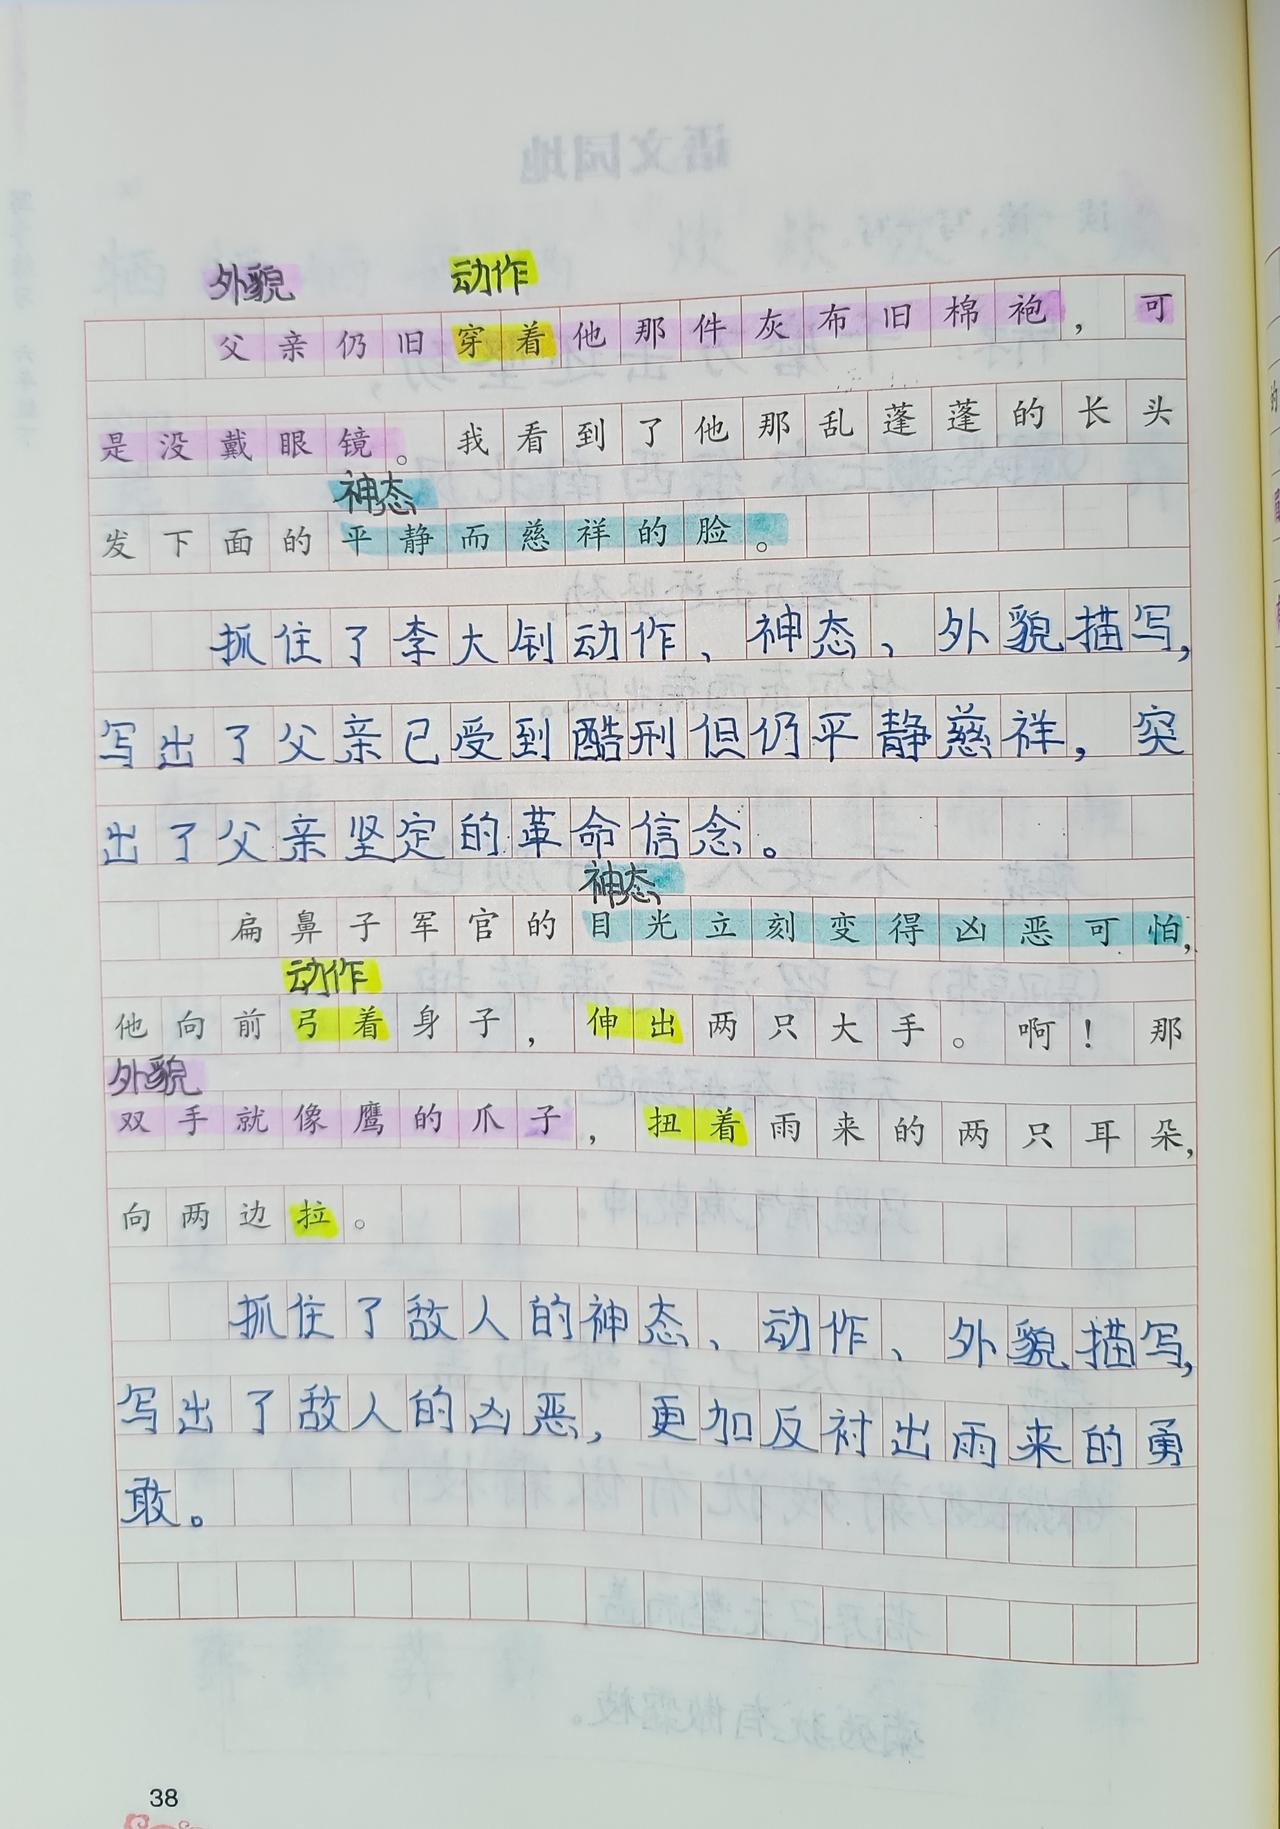 语文园地
外貌 动作
父亲仍旧穿着他那件灰布旧棉袍，可
是没戴眼镜。我看到了他那乱蓬蓬的长头
神态
发下面的平静而慈祥的脸。
抓住了李大钊动作、神态、外貌描写，
写出了父亲已受到酷刑但仍平静慈祥，突
出了父亲坚定的革命信念。
神态
扁鼻子军官的目光立刻变得凶恶可怕，
动作
他向前弓着身子，伸出两只大手。啊！那
外貌
双手就像鹰的爪子，扭着雨来的两只耳朵，
向两边拉。
抓住了敌人的神态、动作、外貌描写，
写出了敌人的凶恶，更加反衬出雨来的勇
敢。
38